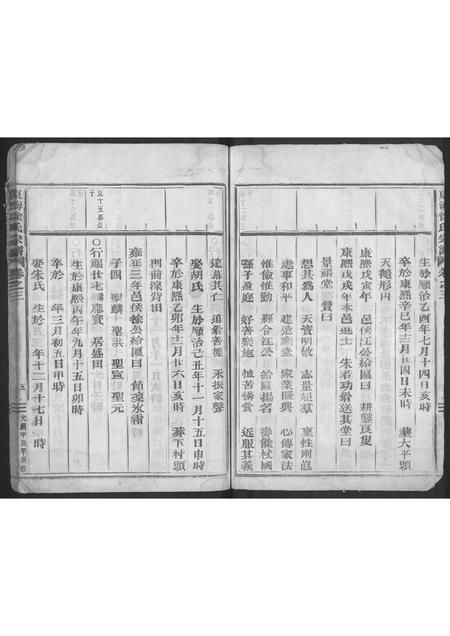 生於順治乙酉年七月十四日亥時
卒於康熙辛巳年十二月廿四日未時 葬大平頭
天鵝形內
康熙戊寅年 邑侯江公給匾曰 耕鑿
康熙戊戌年本邑進士 朱 送其堂曰
景福堂 贊曰
想其爲人 天資明敏 志量超羣 秉性剛直
處事和平 建造廟堂 家業隆興 心傳家法
惟儉惟勤 縣令江公 給匾揚名 壽餘杖國
孫子盈庭 好善樂施 恤苦憐貧 近服其義
遠慕其仁 追溯善德 永振家聲
娶胡氏 生於順治己丑年十一月十五日申時
卒於康熙乙卯年十二月廿六日亥時 葬下村頭
門前湶背田
雍正三年邑侯徐公給匾曰 節凜氷霜
子四 聖麟 聖洪 聖宣 聖元
〇行福廿七 應賓 居盛田
生於康熙丙午年九月十五日卯時
卒於 年三月初五日申時
娶朱氏 生於 年十一月十七日 時
東海徐氏宗譜 卷之三
五